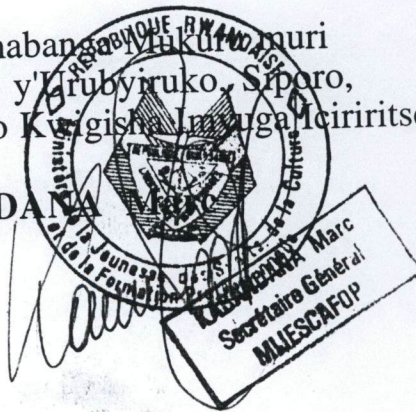 Mukuru muri
y'Urubyiruko, Siporo,
Kwigisha Imyuga Iciriritse
DANA Marc
REPUBLIQUE RWANDAISE
Ministère de la Jeunesse, des Sports, de la Culture
et de la Formation Professionnelle
Marc
Secrétaire Général
MIJESCAFOP